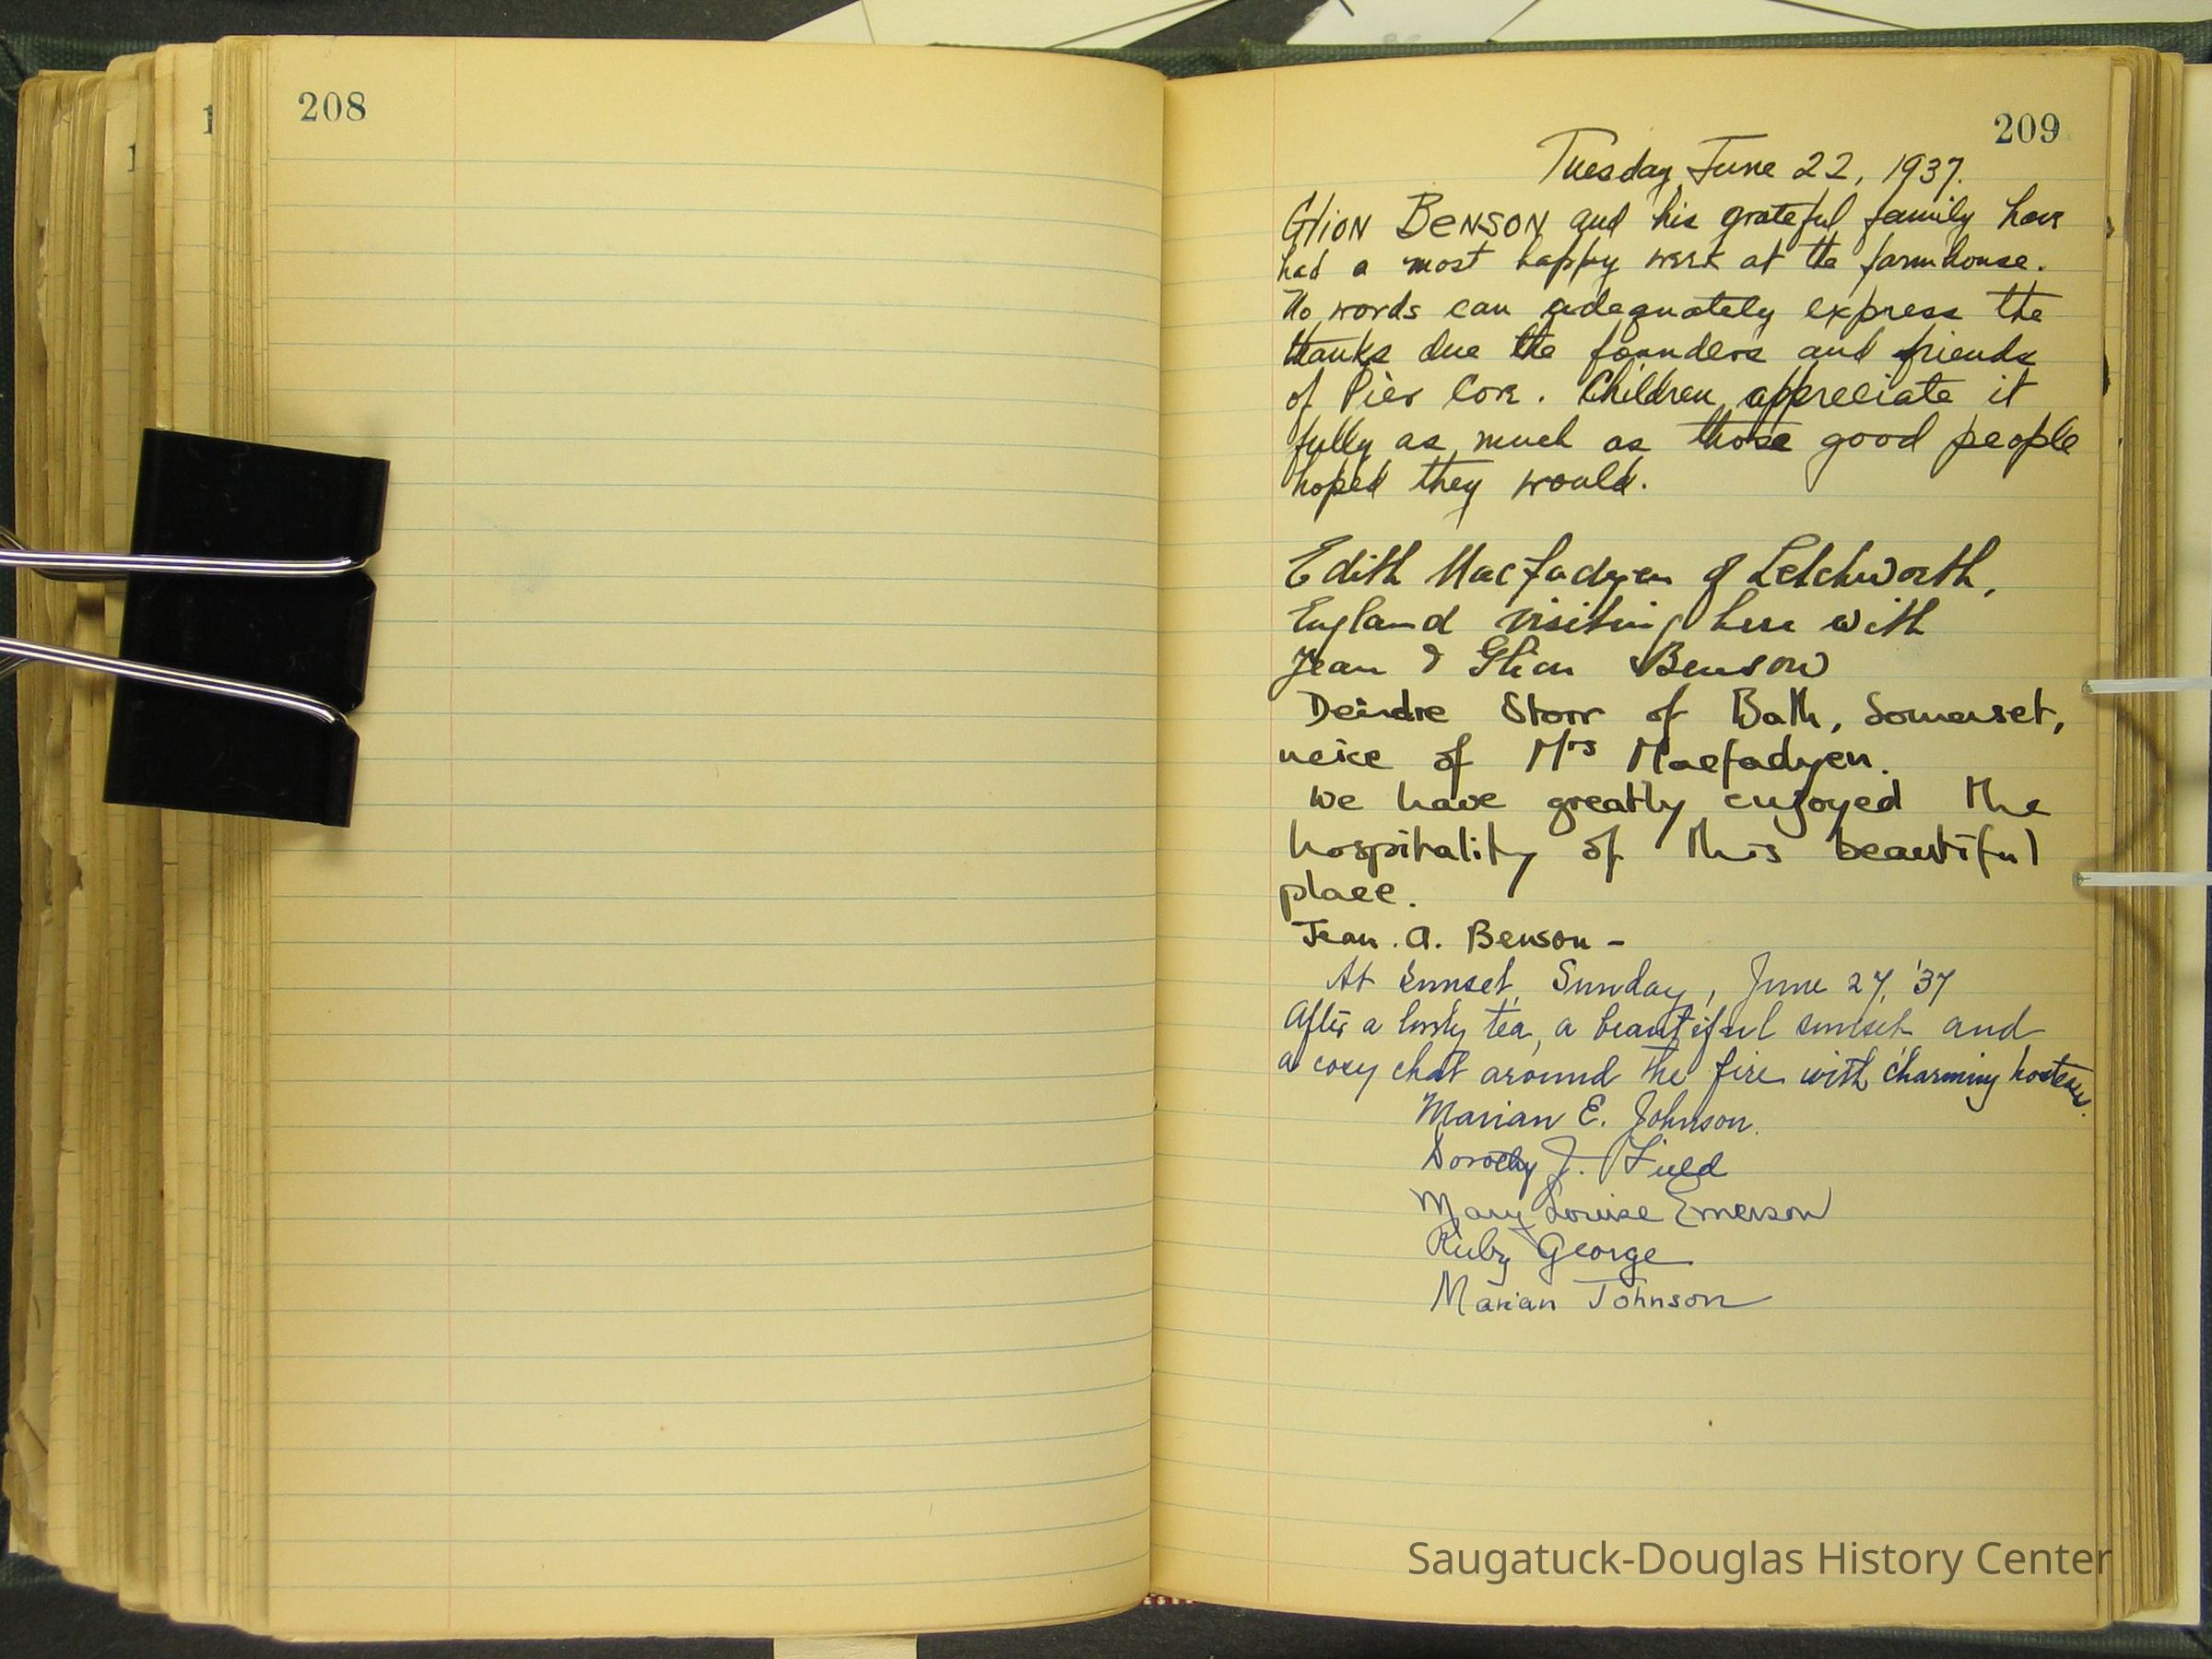 208
209
Tuesday, June 22, 1937.
Glion Benson and his grateful family have
had a most happy week at the farmhouse.
No words can adequately express the
thanks due the founders and friends
of Pier Cove. Children appreciate it
fully as much as those good people
hoped they would.
Edith Macfadyen of Letchworth,
England visiting here with
Jean & Glion Benson
Deirdre Storr of Bath, Somerset,
neice of Mrs Macfadyen.
We have greatly enjoyed the
hospitality of this beautiful
place.
Jean. A. Benson -
At sunset, Sunday, June 27, '37
After a lovely tea, a beautiful sunset and
a cosy chat around the fire with charming hostess.
Marian E. Johnson.
Dorothy J. Field
Mary Louise Emerson
Ruby George
Marian Johnson
Saugatuck-Douglas History Center